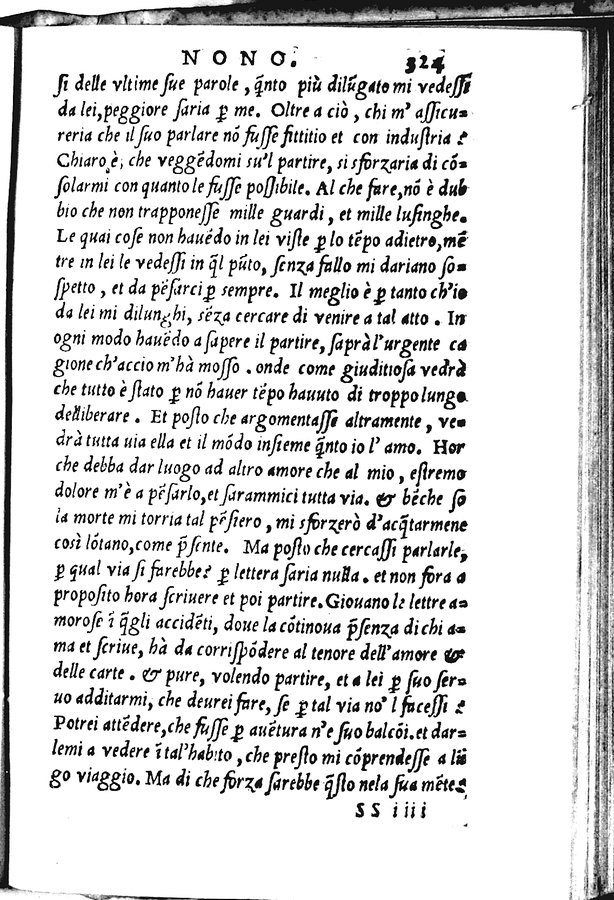 NONO. 324
ſi delle vltime ſue parole, q̃nto più dilũgato mi vedeſſi
da lei, peggiore ſaria ꝑ me. Oltre a ciò, chi m' aſſicu=
reria che il ſuo parlare nõ fuſſe fittitio et con induſtria?
Chiaro è, che veggẽdomi su'l partire, si sforzaria di cõ=
ſolarmi con quanto le fuſſe poſſibile. Al che fare, nõ è dub
bio che non trapponeſſe mille guardi, et mille luſinghe.
Le quai coſe non hauẽdo in lei viſte ꝑ lo tẽpo adietro, mẽ
tre in lei le vedeſſi in q̃l pũto, ſenza fallo mi dariano ſo=
ſpetto, et da pẽſarci ꝑ sempre. Il meglio è ꝑ tanto ch'io
da lei mi dilunghi, sẽza cercare di venire a tal atto. In
ogni modo hauẽdo a ſapere il partire, ſaprà l'urgente ca
gione ch'accio m'hà moſſo. onde come giuditioſa vedrà
che tutto è ſtato ꝑ nõ hauer tẽpo hauuto di troppo lungo
delliberare. Et poſto che argomentaſſe altramente, ve=
drà tutta uia ella et il mõdo inſieme q̃nto io l' amo. Hor
che debba dar luogo ad altro amore che al mio, eſtremo
dolore m'è a pẽſarlo, et ſarammici tutta via. & bẽche ſo
la morte mi torria tal pẽſiero, mi sforzerò d'acq̃tarmene
così lõtano, come p̃ſente. Ma poſto che cercaſſi parlarle,
ꝑ qual via ſi farebbe? ꝑ lettera ſaria nulla. et non fora a
propoſito hora ſcriuere et poi partire. Giouano le lettre a=
moroſe ĩ q̃gli accidẽti, doue la cõtinoua p̃ſenza di chi a=
ma et ſcriue, hà da corriſpõdere al tenore dell'amore &
delle carte. & pure, volendo partire, et a lei ꝑ ſuo ſer=
uo additarmi, che deurei fare, ſe ꝑ tal via no'l faceſſi?
Potrei attẽdere, che fuſſe ꝑ auẽtura n'e ſuo balcõi. et dar=
lemi a vedere ĩ tal'habito, che preſto mi cõprendeſſe a lũ
go viaggio. Ma di che forza ſarebbe q̃ſto nela ſua mẽte?
SS iiii